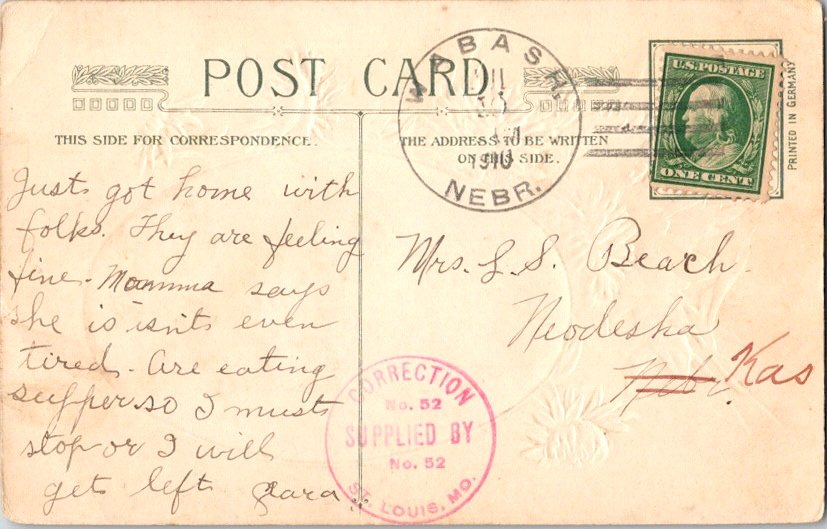 POST CARD
THIS SIDE FOR CORRESPONDENCE.
THE ADDRESS TO BE WRITTEN
ON THIS SIDE.
WABASH,
1910
NEBR.
U.S. POSTAGE
ONE CENT
PRINTED IN GERMANY
Just got home with
folks. They are feeling
fine. Mamma says
she is isnt even
tired. Are eating
supper so I must
stop or I will
get left Clara
Mrs. L. S. Beach.
Neodesha
Nebr. Kas
CORRECTION
No. 52
SUPPLIED BY
No. 52
ST. LOUIS, MO.